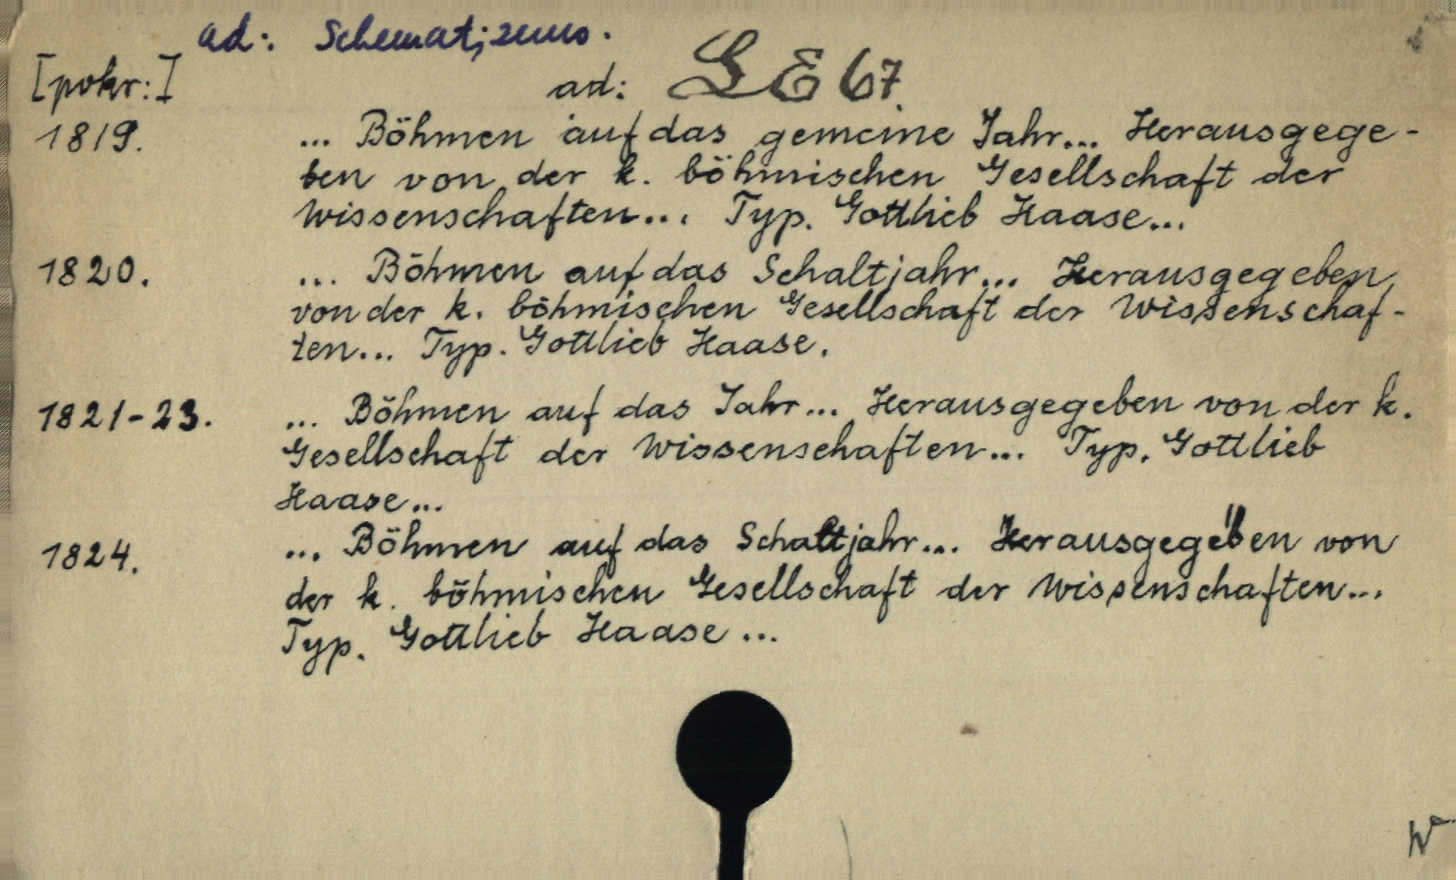 ad: Schematizmus.
[pokr:] ad: LE 67.
1819. ... Böhmen auf das gemeine Jahr... Herausgege-
ben von der k. böhmischen Gesellschaft der
Wissenschaften... Typ. Gottlieb Haase...
1820. ... Böhmen auf das Schaltjahr... Herausgegeben
von der k. böhmischen Gesellschaft der Wissenschaf-
ten... Typ. Gottlieb Haase.
1821-23. ... Böhmen auf das Jahr... Herausgegeben von der k.
Gesellschaft der Wissenschaften... Typ. Gottlieb
Haase...
1824. ... Böhmen auf das Schaltjahr... Herausgegeben von
der k. böhmischen Gesellschaft der Wissenschaften...
Typ. Gottlieb Haase...